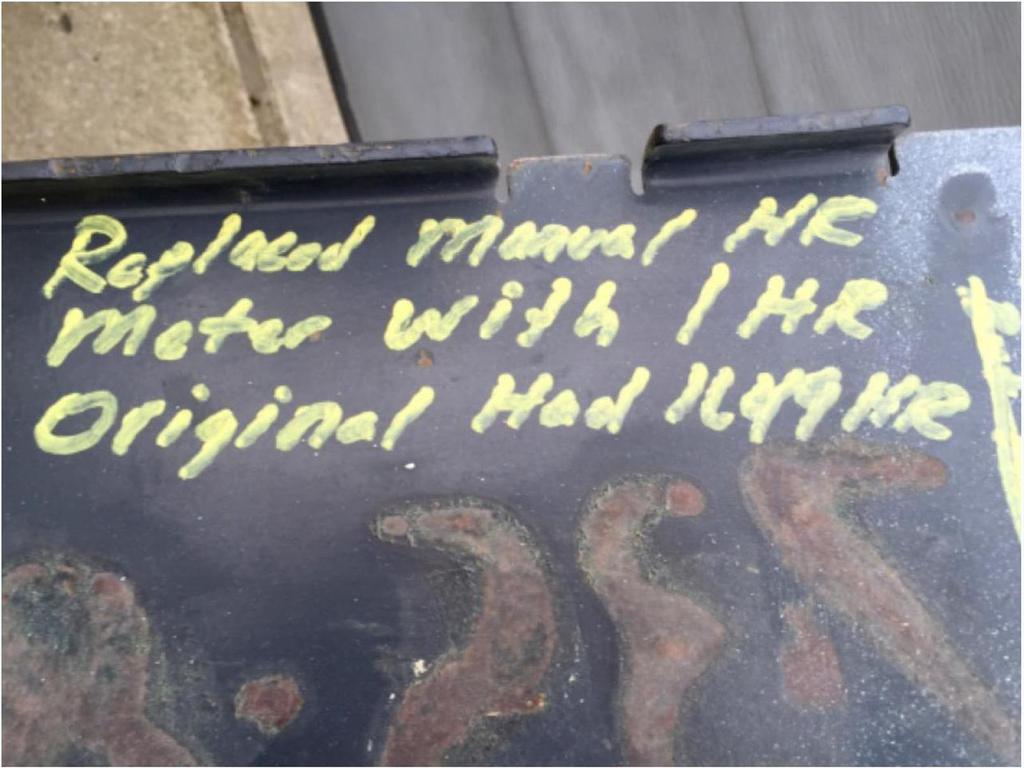 Replaced Manual HR
Meter With 1 HR
Original Had 1649 HR